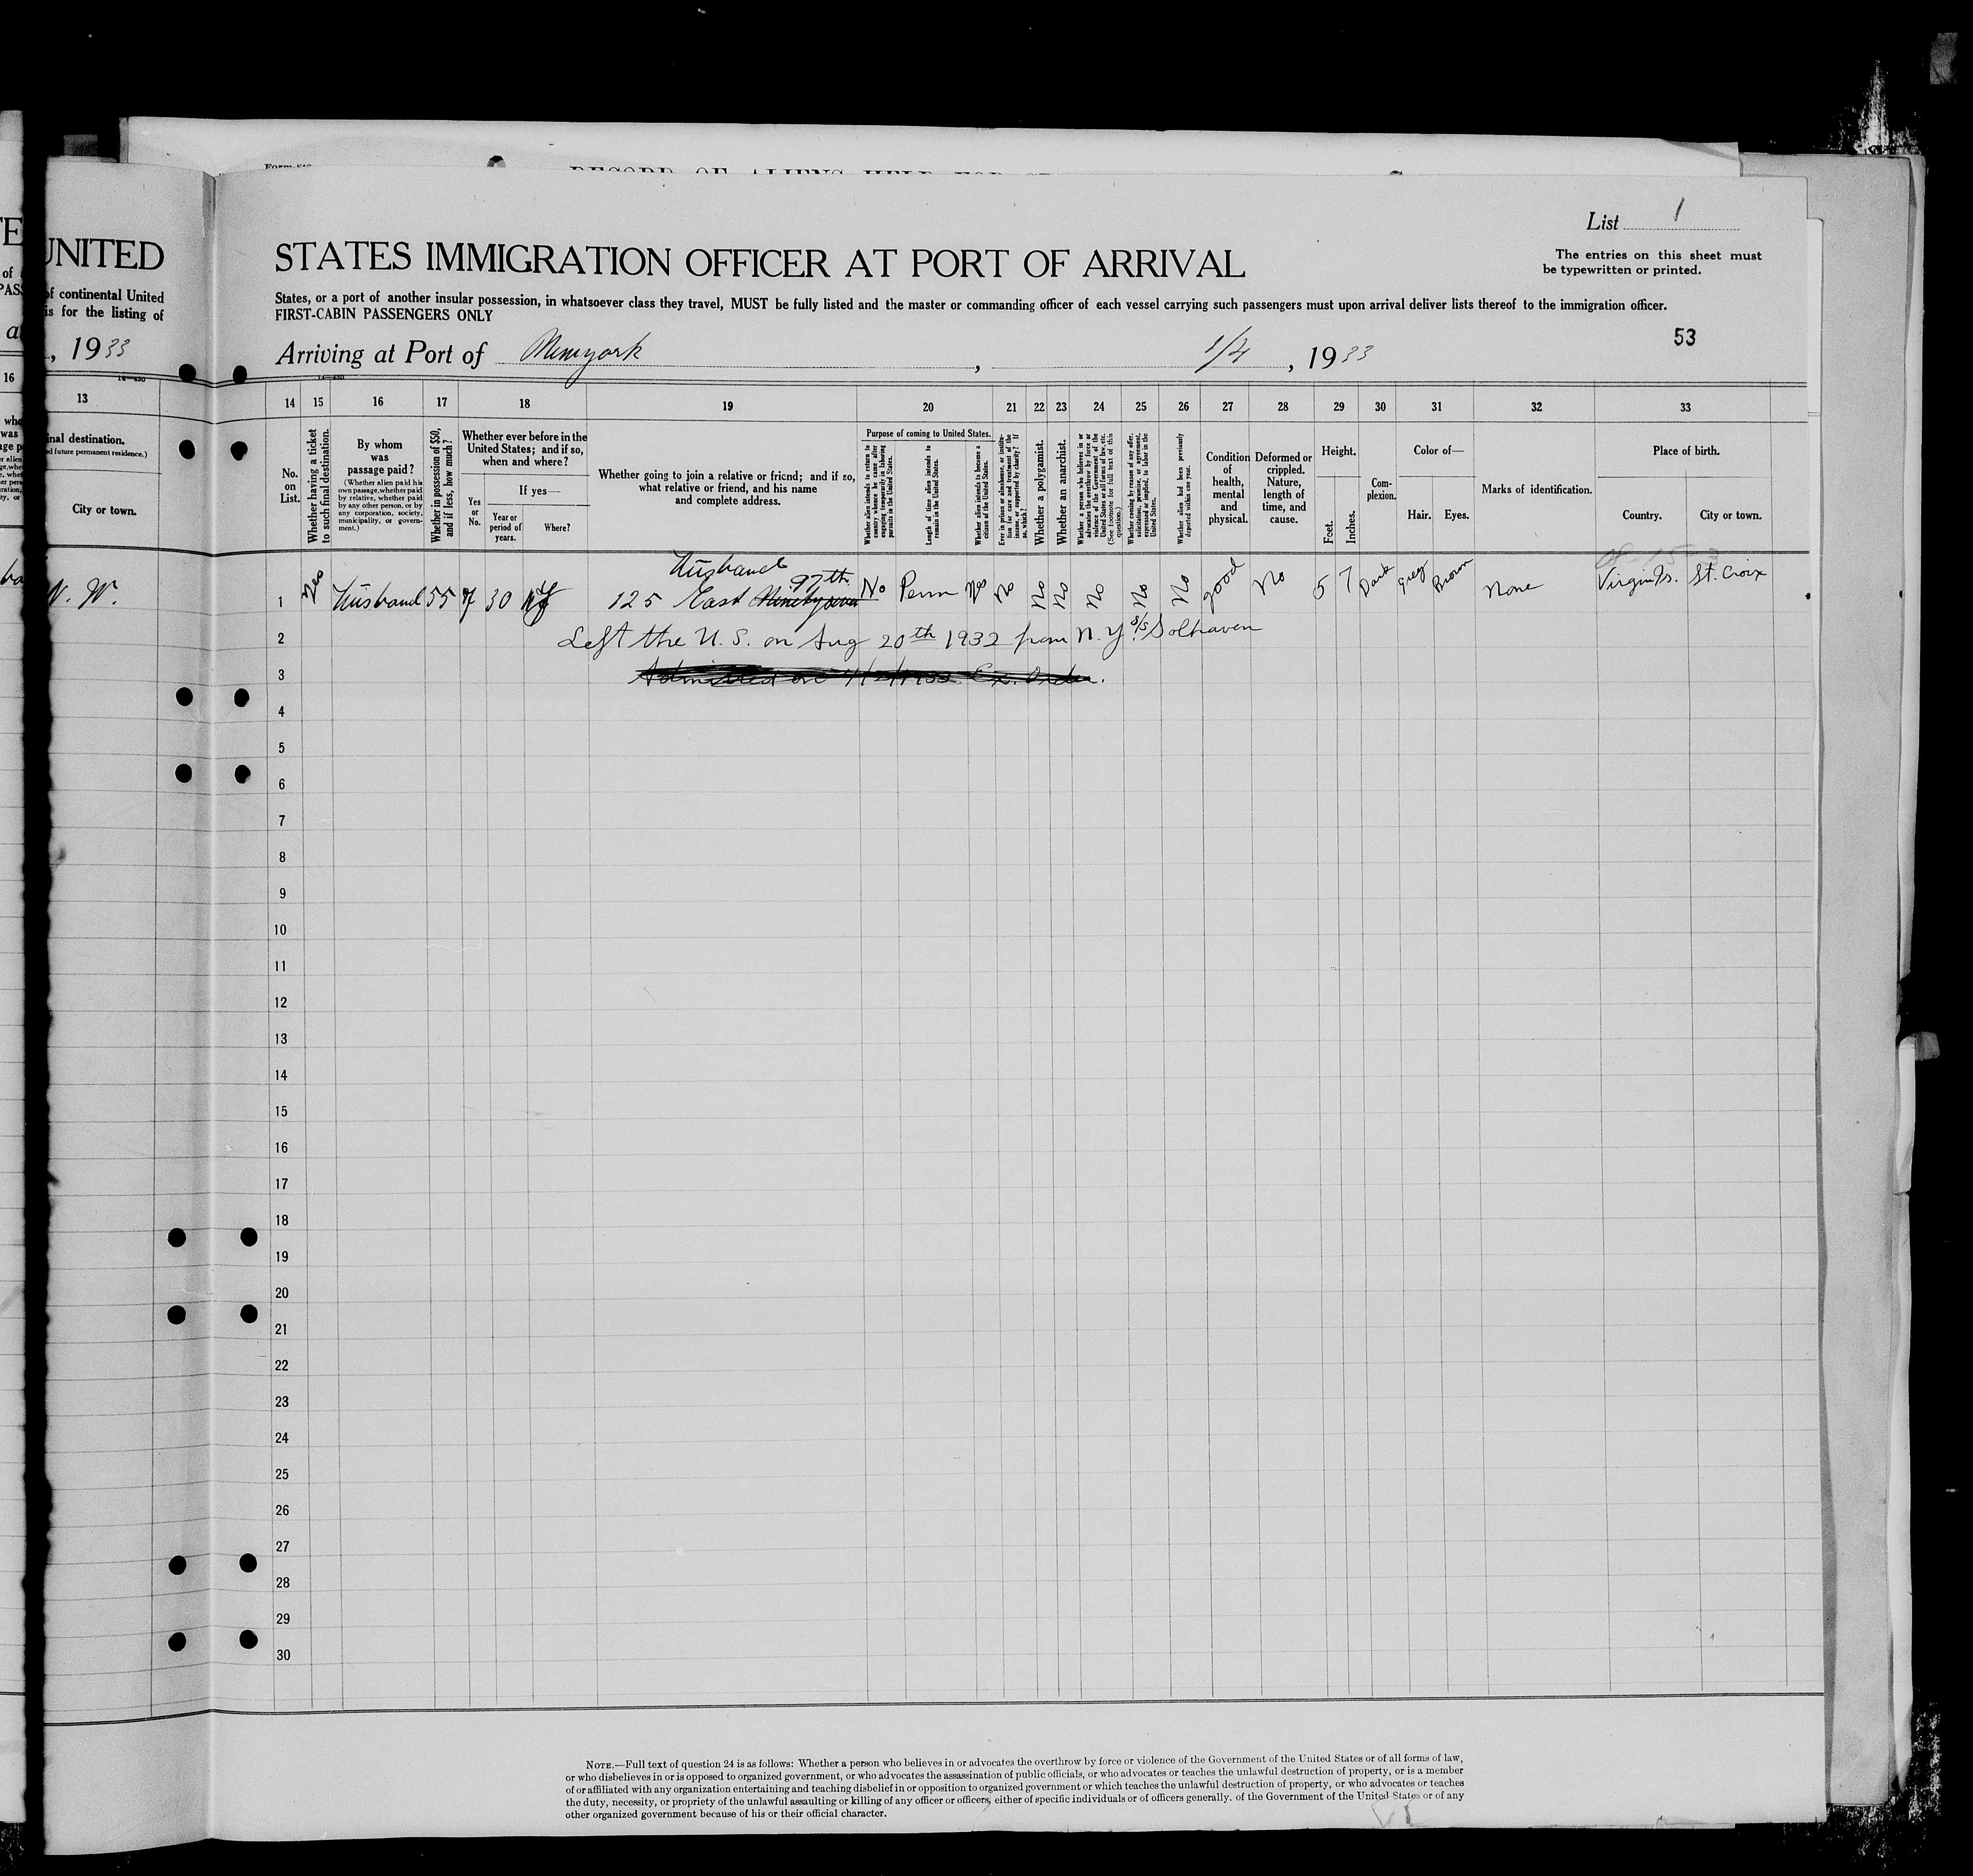 RECORD OF ALIENS HELD FOR
List 1
The entries on this sheet must
be typewritten or printed.
UNITED
STATES IMMIGRATION OFFICER AT PORT OF ARRIVAL
of continental United
is for the listing of
States, or a port of another insular possession, in whatsoever class they travel, MUST be fully listed and the master or commanding officer of each vessel carrying such passengers must upon arrival deliver lists thereof to the immigration officer.
FIRST-CABIN PASSENGERS ONLY
53
, 1933
Arriving at Port of Newyork, 1/4, 1933
13
14 15 16 17 18 19 20 21 22 23 24 25 26 27 28 29 30 31 32 33
inal destination.
ed future permanent residence.)
City or town.
No. on List.
Whether having a ticket to such final destination.
By whom was passage paid?
(Whether alien paid his own passage, whether paid by relative, whether paid by any other person, or by any corporation, society, municipality, or government.)
Whether in possession of $50, and if less, how much?
Whether ever before in the United States; and if so, when and where?
Yes or No.
If yes—
Year or period of years.
Where?
Whether going to join a relative or friend; and if so, what relative or friend, and his name and complete address.
Purpose of coming to United States.
Whether alien intends to return to country whence he came after engaging temporarily in laboring pursuits in the United States.
Length of time alien intends to remain in the United States.
Whether alien intends to become a citizen of the United States.
Ever in prison or almshouse, or institution for care and treatment of the insane, or supported by charity? If so, which?
Whether a polygamist.
Whether an anarchist.
Whether a person who believes in or advocates the overthrow by force or violence of the Government of the United States or all forms of law, etc. (See footnote for full text of this question.)
Whether coming by reason of any offer, solicitation, promise, or agreement, expressed or implied, to labor in the United States.
Whether alien had been previously deported within one year.
Condition of health, mental and physical.
Deformed or crippled. Nature, length of time, and cause.
Height.
Feet.
Inches.
Complexion.
Color of—
Hair.
Eyes.
Marks of identification.
Place of birth.
Country.
City or town.
Husband
97th
N. W.
1 Yes Husband 55 30 125 East No Perm Yes No No No No No No good No 5 7 Dark Grey Brown None Virgin Is. St. Croix
2 Left the U.S. on Aug 20th 1932 from N.Y. S/S Solhaven
3 Ex. Order.
4
5
6
7
8
9
10
11
12
13
14
15
16
17
18
19
20
21
22
23
24
25
26
27
28
29
30
NOTE.—Full text of question 24 is as follows: Whether a person who believes in or advocates the overthrow by force or violence of the Government of the United States or of all forms of law,
or who disbelieves in or is opposed to organized government, or who advocates the assassination of public officials, or who advocates or teaches the unlawful destruction of property, or is a member
of or affiliated with any organization entertaining and teaching disbelief in or opposition to organized government or which teaches the unlawful destruction of property, or who advocates or teaches
the duty, necessity, or propriety of the unlawful assaulting or killing of any officer or officers, either of specific individuals or of officers generally, of the Government of the United States or of any
other organized government because of his or their official character.